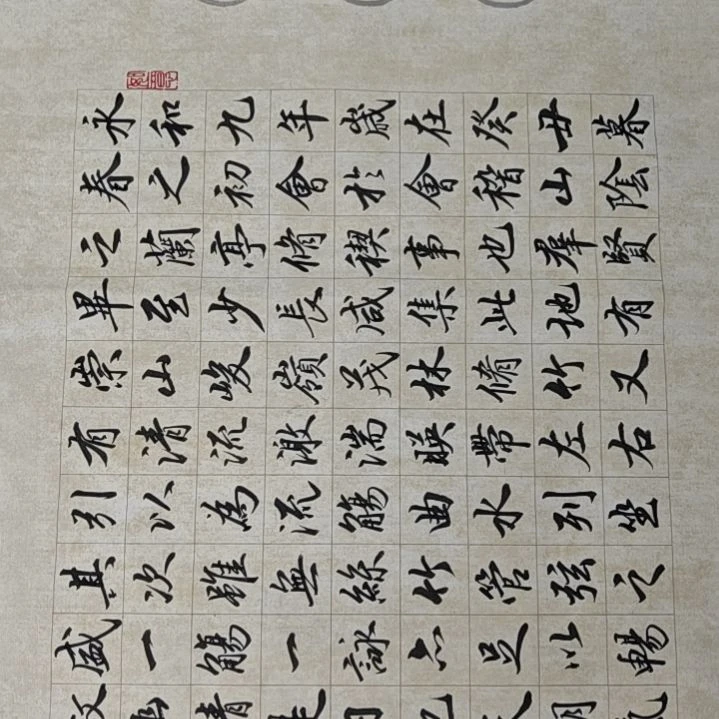 永和九年歲在癸丑暮
春之初會於會稽山陰
之蘭亭脩稧事也羣賢
畢至少長咸集此地有
崇山峻嶺茂林脩竹又
有清流激湍暎帶左右
引以為流觴曲水列坐
其次雖無絲竹管弦之
盛一觴一詠亦足以暢